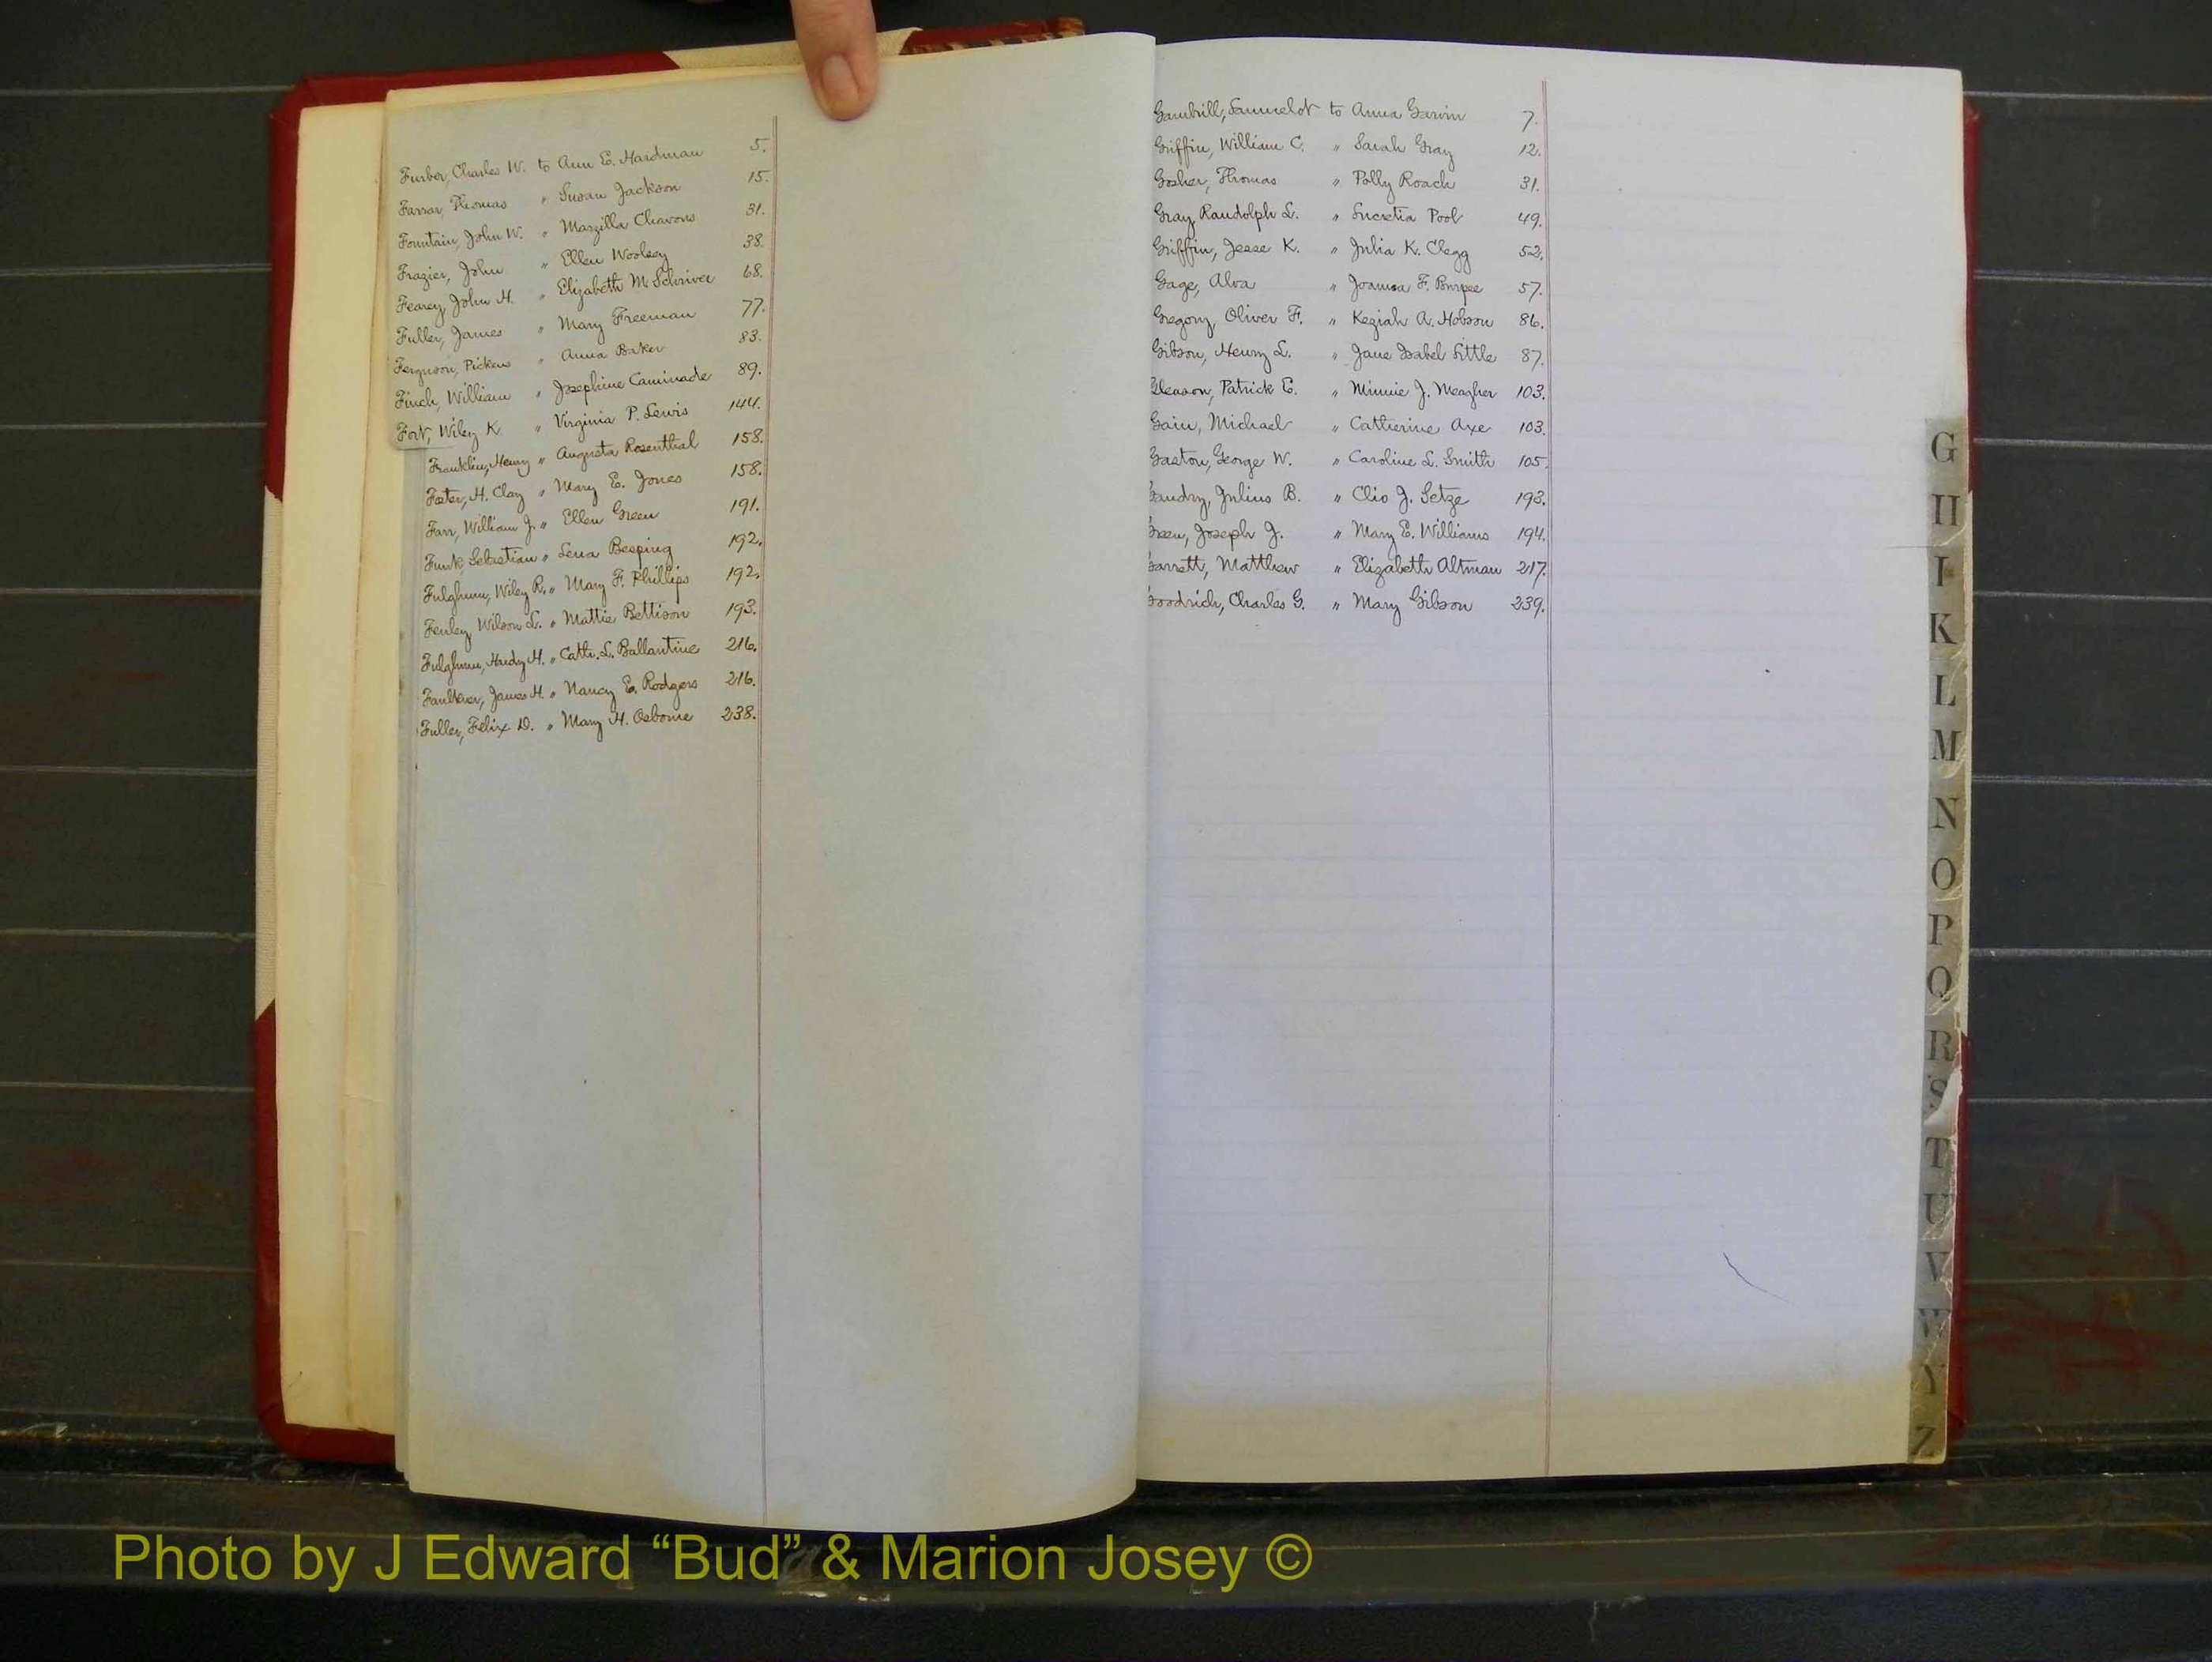 Furber, Charles W. to Ann E. Hardman 5.
Farrar, Thomas " Susan Jackson 15.
Fountain, John W. " Marzilla Chavons 31.
Frazier, John " Ellen Woolsey 38.
Fearey, John H. " Elizabeth M. Schriver 68.
Fuller, James " Mary Freeman 77.
Ferguson, Pickens " Anna Baker 83.
Finch, William " Josephine Caminade 89.
Fort, Wiley K. " Virginia P. Lewis 144.
Franklin, Henry " Augusta Rosenthal 158.
Foster, H. Clay " Mary E. Jones 158.
Farr, William J. " Ellen Green 191.
Funk, Sebastian " Lena Besping 192.
Fulghum, Wiley R. " Mary F. Phillips 192.
Fenley, Wilson L. " Mattie Bettison 193.
Fulghum, Hardy H. " Cath. L. Ballantine 216.
Faulkner, James H. " Nancy E. Rodgers 216.
Fuller, Felix D. " Mary H. Osborne 238.
Gambrill, to Anna Garvin 7.
Griffin, William C. " Sarah Gray 12.
Gosher, Thomas " Polly Roach 31.
Gray, Randolph L. " Lucretia Pool 49.
Griffin, Jesse K. " Julia K. Clegg 52.
Gage, Alva " Joanna F. Bumpee 57.
Gregory, Oliver F. " Keziah A. Hobson 86.
Gibson, Henry L. " Jane Isabel Little 87.
Gleason, Patrick E. " Minnie J. Meagher 103.
Gain, Michael " Catherine Axe 103.
Gaston, George W. " Caroline L. Smith 105.
Gaudry, Julius B. " Clio J. Setze 193.
Green, Joseph J. " Mary E. Williams 194.
Garrett, Matthew " Elizabeth Altman 217.
Goodrich, Charles G. " Mary Gibson 239.
G
H
I
K
L
M
N
O
P
Q
R
S
T
U
V
W
Y
Z
Photo by J Edward “Bud” & Marion Josey ©